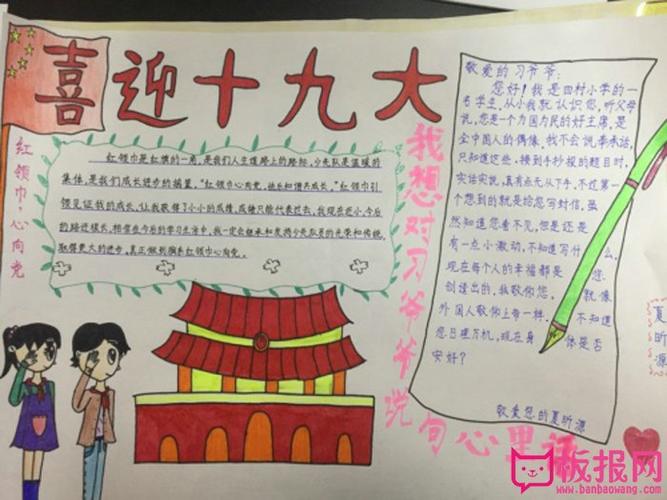 喜迎十九大
红领巾·心向党
红领巾是红旗的一角,是我们人生道路上的路标,少先队是温暖的
集体,是我们成长进步的摇篮,"红领巾心向党,
"红领巾引
领见证我的成长,让我取得了小小的成绩,成绩只能代表过去,我现在还小,今后
的路还很长,相信在今后的学习生活中,我一定会继承和发扬少先队员的光荣和传统,
取得更大的进步,真正做到胸系红领巾心向党。
我想对习爷爷说句心里话
敬爱的习爷爷:
您好!我是田村小学的一
名学生,从小我就认识您,听父母
说,您是一个为国为民的好主席,是
全中国人的偶像,我不会说奉承话,
只知道这些,接到手抄报的题目时,
实话实说,真有点无从下手,不过第一
个想到的就是给您写封信,虽
然知道您看不见,但是还是
有一点小激动,不知道写什么,
现在每个人的幸福都是您
创造出的,我敬仰您,就像
外国人敬仰上帝一样,不知道
您日理万机,现在身体是否
安好?
敬爱您的夏昕源
夏
昕
源
板报网
www.banbaowang.com